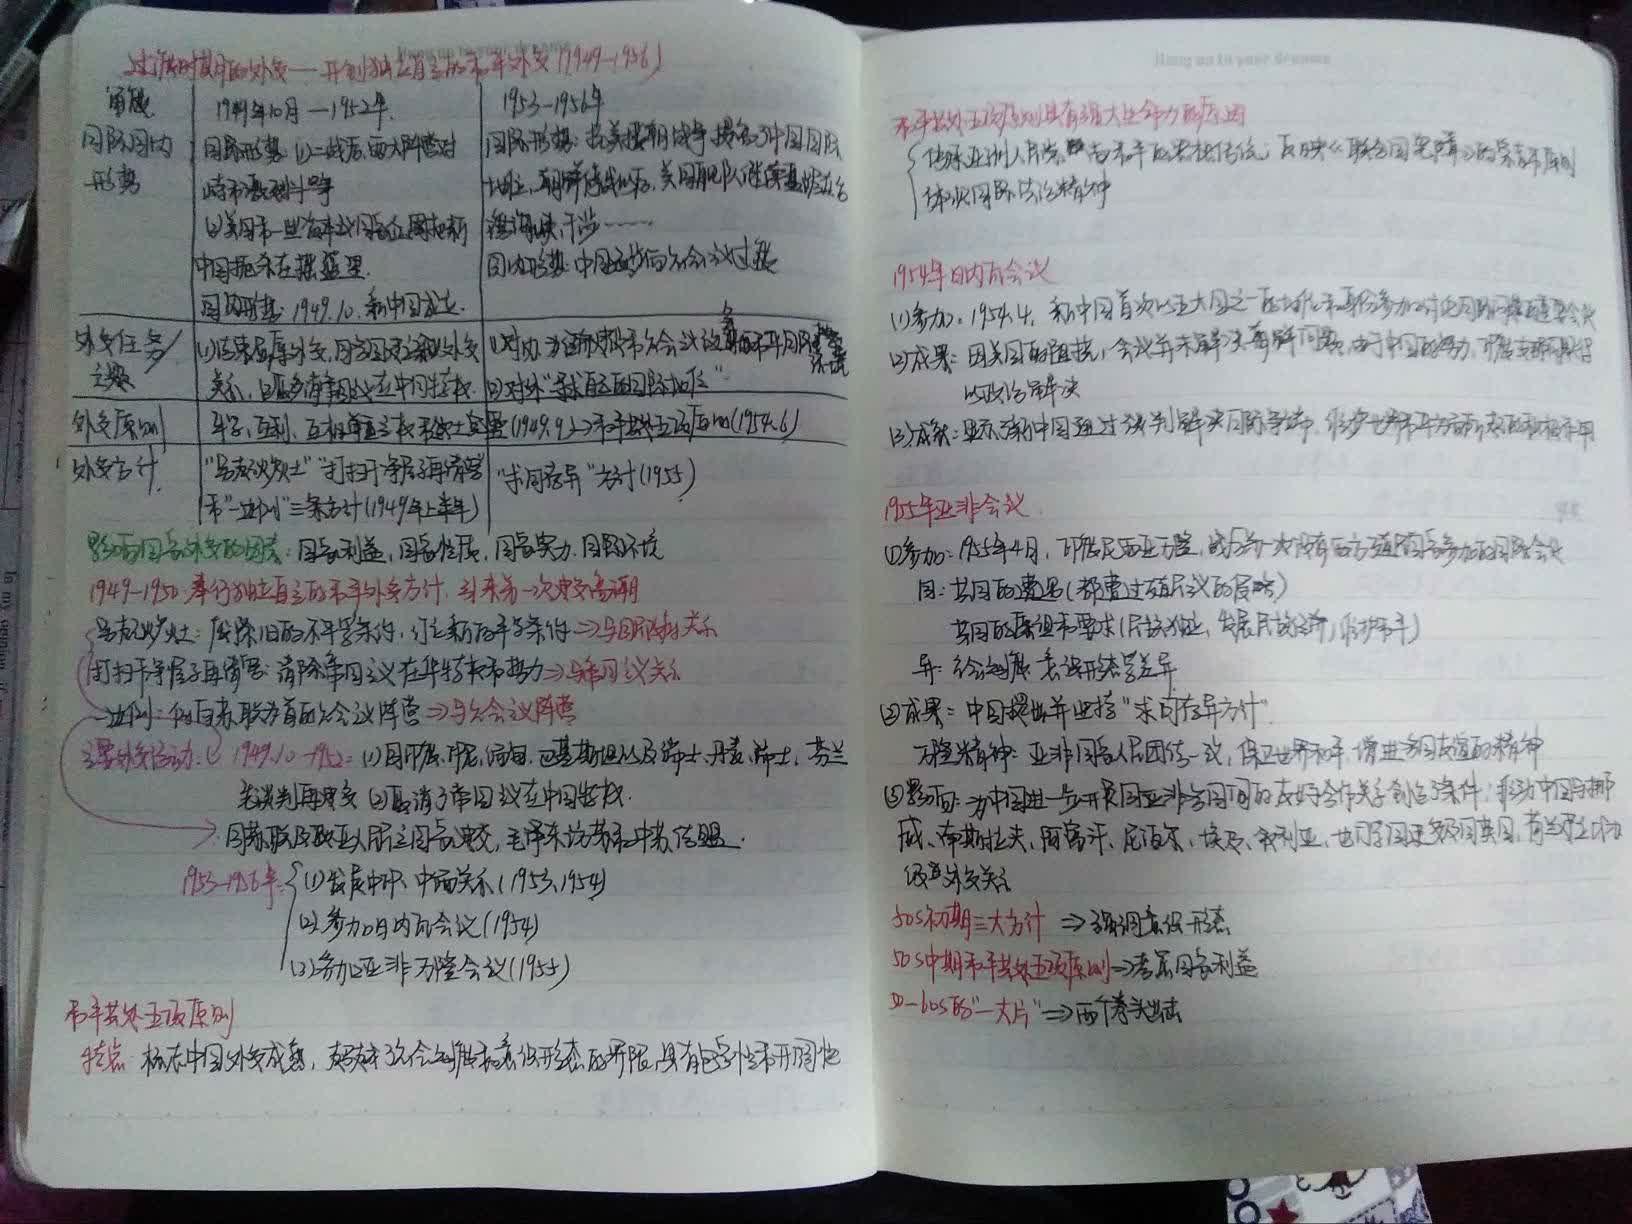 过渡时期的外交——开创独立自主的和平外交(1949-1956)
1949年10月—1952年
1953—1956年
国际国内形势
国际形势:(1)二战后,两大阵营对峙和激烈斗争
(2)美国和一些资本主义国家企图把新中国扼杀在摇篮里.
国内形势:1949.10.新中国成立.
国际形势:抗美援朝战争提高了中国国际地位,朝鲜停战以后,美国舰队继续盘踞在台湾海峡,干涉……
国内形势:中国逐步向社会主义过渡
外交任务/主题
(1)结束屈辱外交,同各国建立新的外交关系,
(2)对外"寻求自己的国际地位"
外交原则
平等、互利、互相尊重主权和领土完整(1949.9)→和平共处五项原则(1954.6)
外交方针
"另起炉灶""打扫干净屋子再请客"和"一边倒"三条方针(1949年上半年)
"求同存异"方针(1955)
影响国家外交的因素:国家利益,国家性质,国家实力,国际环境
1949-1950:奉行独立自主的和平外交方针,到来第一次建交高潮
另起炉灶:废除旧的不平等条约,订立新的平等条约⇒与国民政府关系
打扫干净屋子再请客:清除帝国主义在华特权和势力⇒与帝国主义关系
一边倒:倒向苏联为首的社会主义阵营⇒与社会主义阵营
主要外交活动:1949.10-1952:(1)同印度、印尼、缅甸、巴基斯坦以及瑞士、丹麦、瑞士、芬兰
先谈判再建交 (2)取消了帝国主义在中国特权.
同苏联及欧亚人民民主国家建交,毛泽东访苏和中苏结盟.
1953-1956年:(1)发展中印、中缅关系(1953、1954)
(2)参加日内瓦会议(1954)
(3)参加亚非万隆会议(1955)
和平共处五项原则
特点:标志中国外交成熟,超越了社会制度和意识形态的界限,具有包容性和开阔性
Hang on to your dreams
和平共处五项原则具有强大生命力的原因
传承亚洲人民崇尚和平的思想传统;反映《联合国宪章》的宗旨和原则
体现国际法治精神
1954年日内瓦会议
(1)参加:1954.4,新中国首次以五大国之一的地位和身份参加讨论国际问题的重要会议
(2)成果:因美国的阻挠,会议并未解决朝鲜问题,由于中国的努力,印度支那问题得
以政治解决
(3)成就:显示了新中国通过谈判解决国际争端,维护世界和平方面所起的积极作用
1955年亚非会议
(1)参加:1955年4月,印度尼西亚万隆,成为第一次没有西方殖民国家参加的国际会议
同:共同的遭遇(都遭过殖民主义的侵略)
共同的愿望和要求(民族独立,发展民族经济,维护和平)
异:社会制度、意识形态等差异
(2)成果:中国提出并坚持"求同存异方针".
万隆精神:亚非国家人民团结一致,保卫世界和平,增进各国友谊的精神
(3)影响:为中国进一步开展同亚非各国间的友好合作关系创造了条件;推动中国与挪
威、南斯拉夫、阿富汗、尼泊尔、埃及、叙利亚、也门等国建交及同英国,荷兰建立代办
级外交关系
50s初期三大方针 ⇒强调意识形态
50s中期和平共处五项原则⇒考虑国家利益
50-60s的"一大片"⇒两个拳头出击